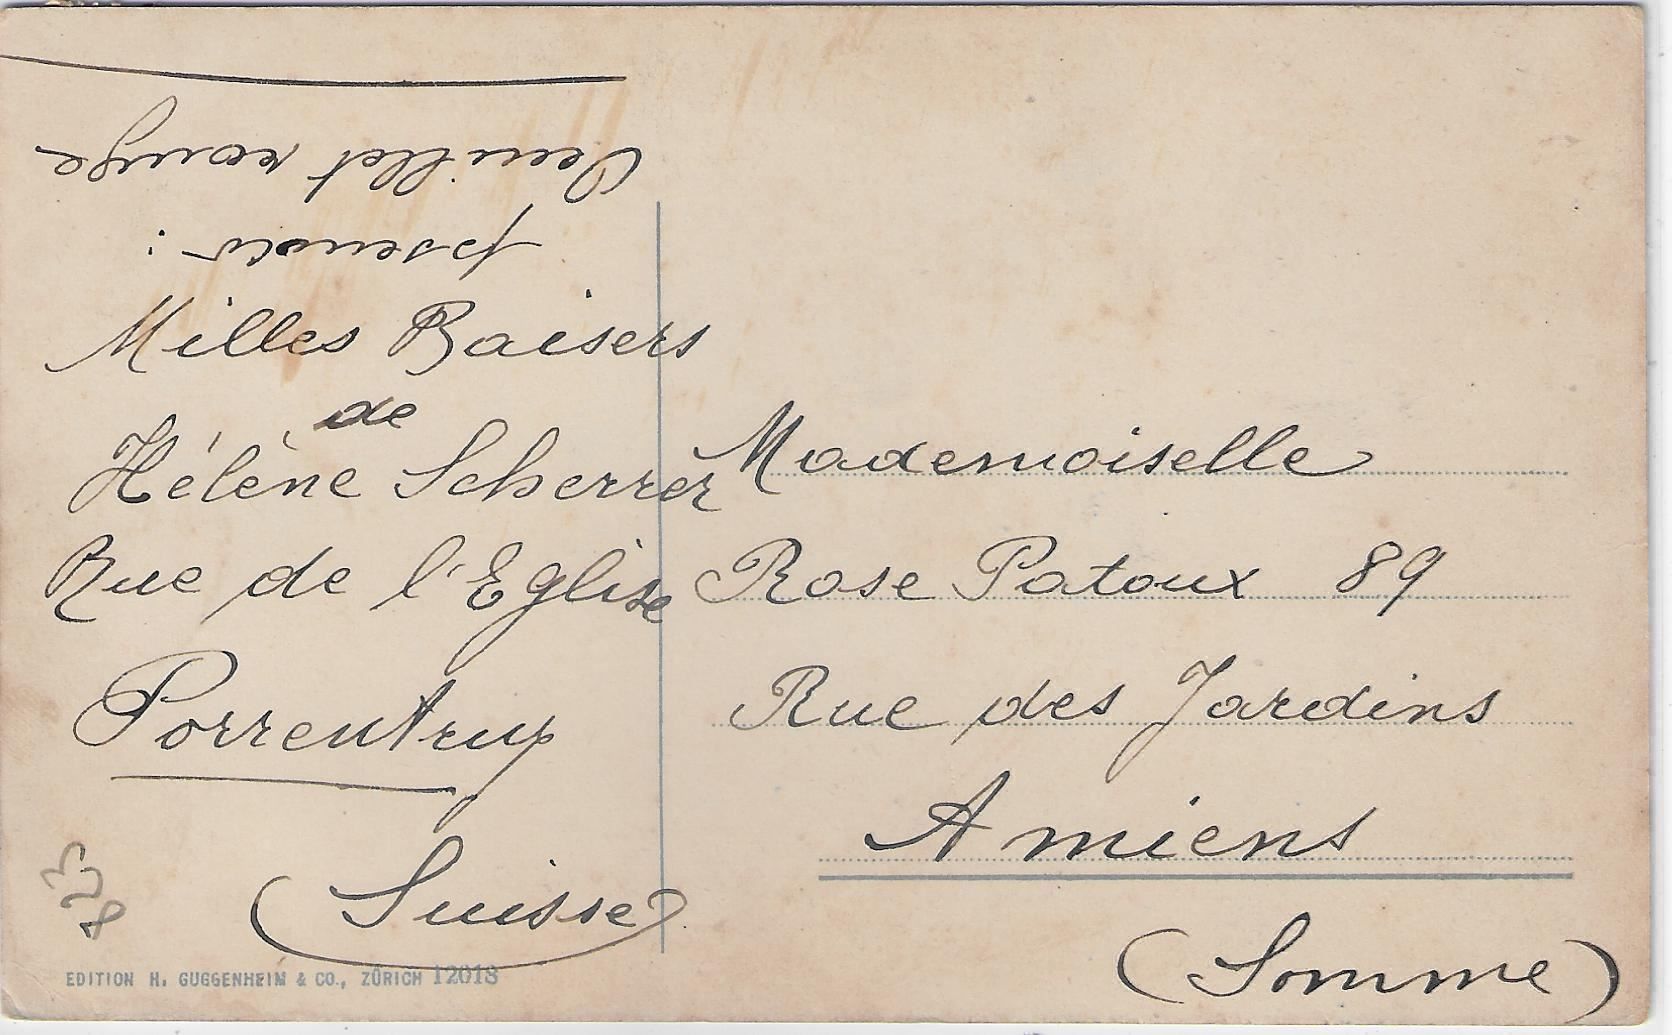 Oeuillet rouge
Milles Baisers
de
Hélène Scherrer
Rue de l'Eglise
Porrentruy
(Suisse)
823
EDITION H. GUGGENHEIM & CO., ZÜRICH 12018
Mademoiselle
Rose Patoux 89
Rue des Jardins
Amiens
(Somme)